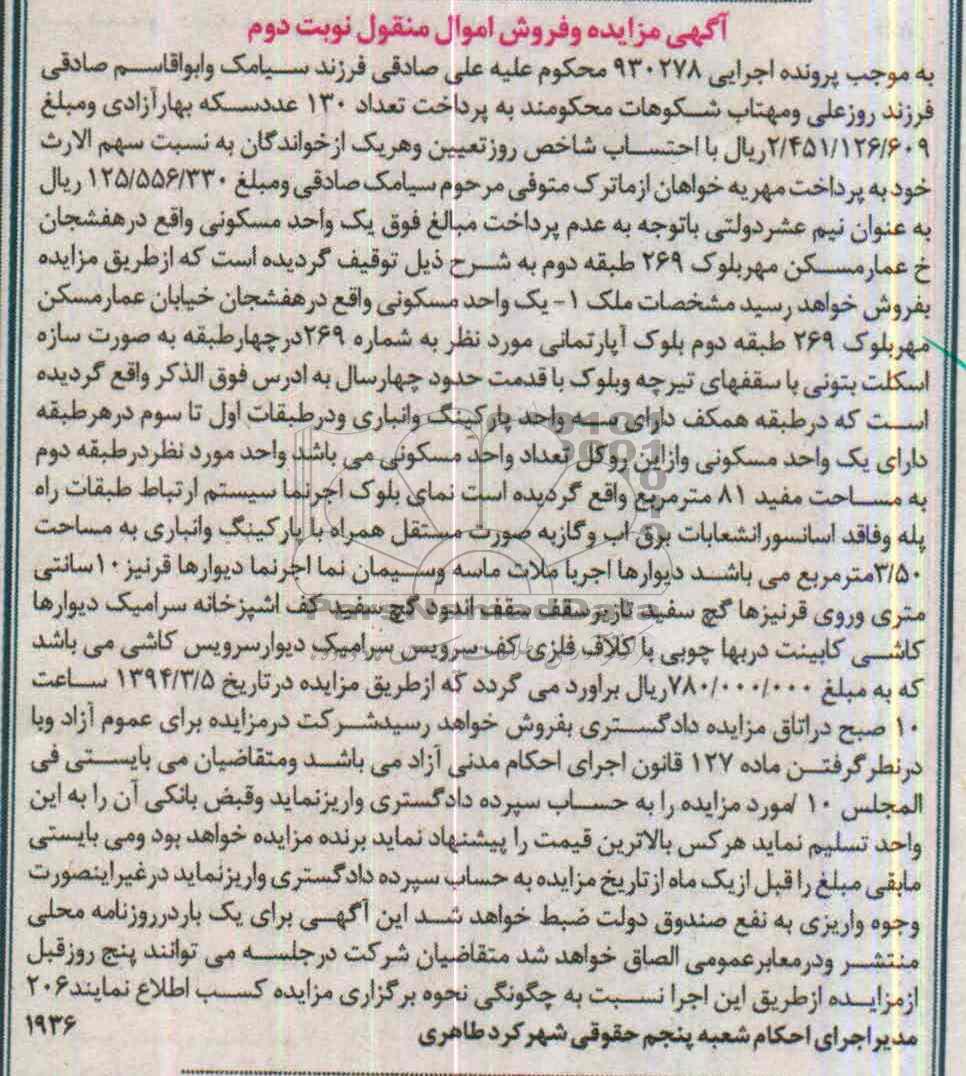 آگهی مزایده وفروش اموال منقول نوبت دوم
به موجب پرونده اجرایی ۹۳۰۲۷۸ محکوم علیه علی صادقی فرزند سیامک وابواقاسم صادقی
فرزند روزعلی ومهتاب شکوهات محکومند به پرداخت تعداد ۱۳۰ عددسکه بهارآزادی ومبلغ
۲/۴۵۱/۱۲۶/۶۰۹ریال با احتساب شاخص روزتعیین وهریک ازخواندگان به نسبت سهم الارث
خود به پرداخت مهریه خواهان ازماترک متوفی مرحوم سیامک صادقی ومبلغ ۱۲۵/۵۵۶/۳۳۰ ریال
به عنوان نیم عشردولتی باتوجه به عدم پرداخت مبالغ فوق یک واحد مسکونی واقع درهفشجان
خ عمارمسکن مهربلوک ۲۶۹ طبقه دوم به شرح ذیل توقیف گردیده است که ازطریق مزایده
بفروش خواهد رسید مشخصات ملک ۱- یک واحد مسکونی واقع درهفشجان خیابان عمارمسکن
مهربلوک ۲۶۹ طبقه دوم بلوک آپارتمانی مورد نظر به شماره ۲۶۹درچهارطبقه به صورت سازه
اسکلت بتونی با سقفهای تیرچه وبلوک با قدمت حدود چهارسال به ادرس فوق الذکر واقع گردیده
است که درطبقه همکف دارای سه واحد پارکینگ وانباری ودرطبقات اول تا سوم درهرطبقه
دارای یک واحد مسکونی وازاین روکل تعداد واحد مسکونی می باشد واحد مورد نظردرطبقه دوم
به مساحت مفید ۸۱ مترمربع واقع گردیده است نمای بلوک اجرنما سیستم ارتباط طبقات راه
پله وفاقد اسانسورانشعابات برق اب وگازبه صورت مستقل همراه با پارکینگ وانباری به مساحت
۳/۵۰مترمربع می باشد دیوارها اجربا ملات ماسه وسیمان نما اجرنما دیوارها قرنیز۱۰سانتی
متری وروی قرنیزها گچ سفید تازیرسقف سقف اندود گچ سفید کف اشپزخانه سرامیک دیوارها
کاشی کابینت دربها چوبی با کلاف فلزی کف سرویس سرامیک دیوارسرویس کاشی می باشد
که به مبلغ ۷۸۰/۰۰۰/۰۰۰ریال براورد می گردد که ازطریق مزایده درتاریخ ۱۳۹۴/۳/۵ ساعت
۱۰ صبح دراتاق مزایده دادگستری بفروش خواهد رسیدشرکت درمزایده برای عموم آزاد وبا
درنطرگرفتن ماده ۱۲۷ قانون اجرای احکام مدنی آزاد می باشد ومتقاضیان می بایستی فی
المجلس ۱۰ /مورد مزایده را به حساب سپرده دادگستری واریزنماید وقبض بانکی آن را به این
واحد تسلیم نماید هرکس بالاترین قیمت را پیشنهاد نماید برنده مزایده خواهد بود ومی بایستی
مابقی مبلغ را قبل ازیک ماه ازتاریخ مزایده به حساب سپرده دادگستری واریزنماید درغیراینصورت
وجوه واریزی به نفع صندوق دولت ضبط خواهد شد این آگهی برای یک باردرروزنامه محلی
منتشر ودرمعابرعمومی الصاق خواهد شد متقاضیان شرکت درجلسه می توانند پنج روزقبل
ازمزایده ازطریق این اجرا نسبت به چگونگی نحوه برگزاری مزایده کسب اطلاع نمایند۲۰۶
مدیراجرای احکام شعبه پنجم حقوقی شهرکرد طاهری ۱۹۳۶
ParsNamadData